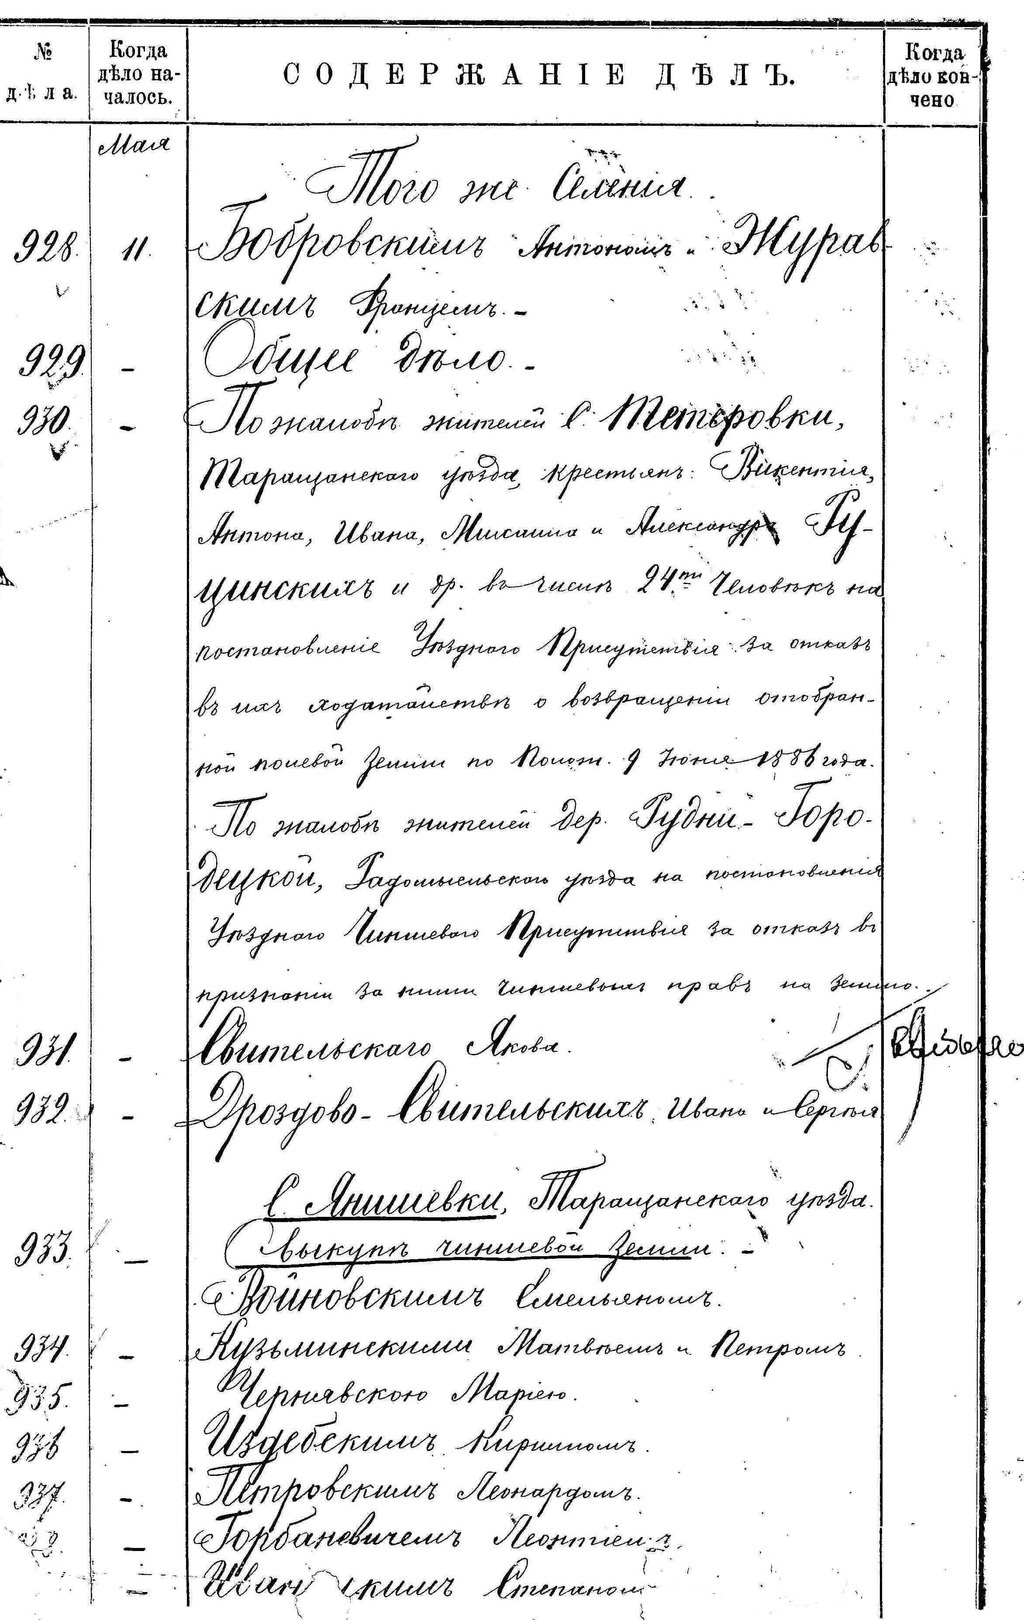 № дѣла.
Когда дѣло началось.
СОДЕРЖАНІЕ ДѢЛЪ.
Когда дѣло кончено
Мая
Того же Селенія.
928. 11. Бобровскимъ Антономъ и Журав
скимъ Францемъ. –
929. – Общее дѣло. –
930. – По жалобѣ жителей С. Тетеровки,
Таращанскаго уѣзда, крестьянъ: Викентія,
Антона, Ивана, Михаила и Александра Ру-
цинскихъ и др. въ числѣ 24ти Человѣкъ на
постановленіе Уѣзднаго Присутствія за отказъ
въ ихъ ходатайствѣ о возвращеніи отобран-
ной полевой земли по Полож. 9 Іюня 1886 года.
По жалобѣ жителей дер. Рудни-Горо-
децкой, Радомысльскаго уѣзда на постановленія
Уѣзднаго Чиншеваго Присутствія за отказъ въ
признаніи за ними чиншевыхъ правъ на землю.
931. – Свительскаго Якова.
932. – Дроздово-Свительскихъ, Ивана и Сергѣя
С. Янишевки, Таращанскаго уѣзда.
933. – Выкупъ чиншевой земли. –
Войновскимъ Емельяномъ.
934. – Кузьминскими Матвѣемъ и Петромъ.
935. – Чернявскою Маріею.
936 – Издебскимъ Кирилломъ.
937. – Петровскимъ Леонардомъ.
– Горбаневичемъ Леонтіемъ.
– скимъ Степаном